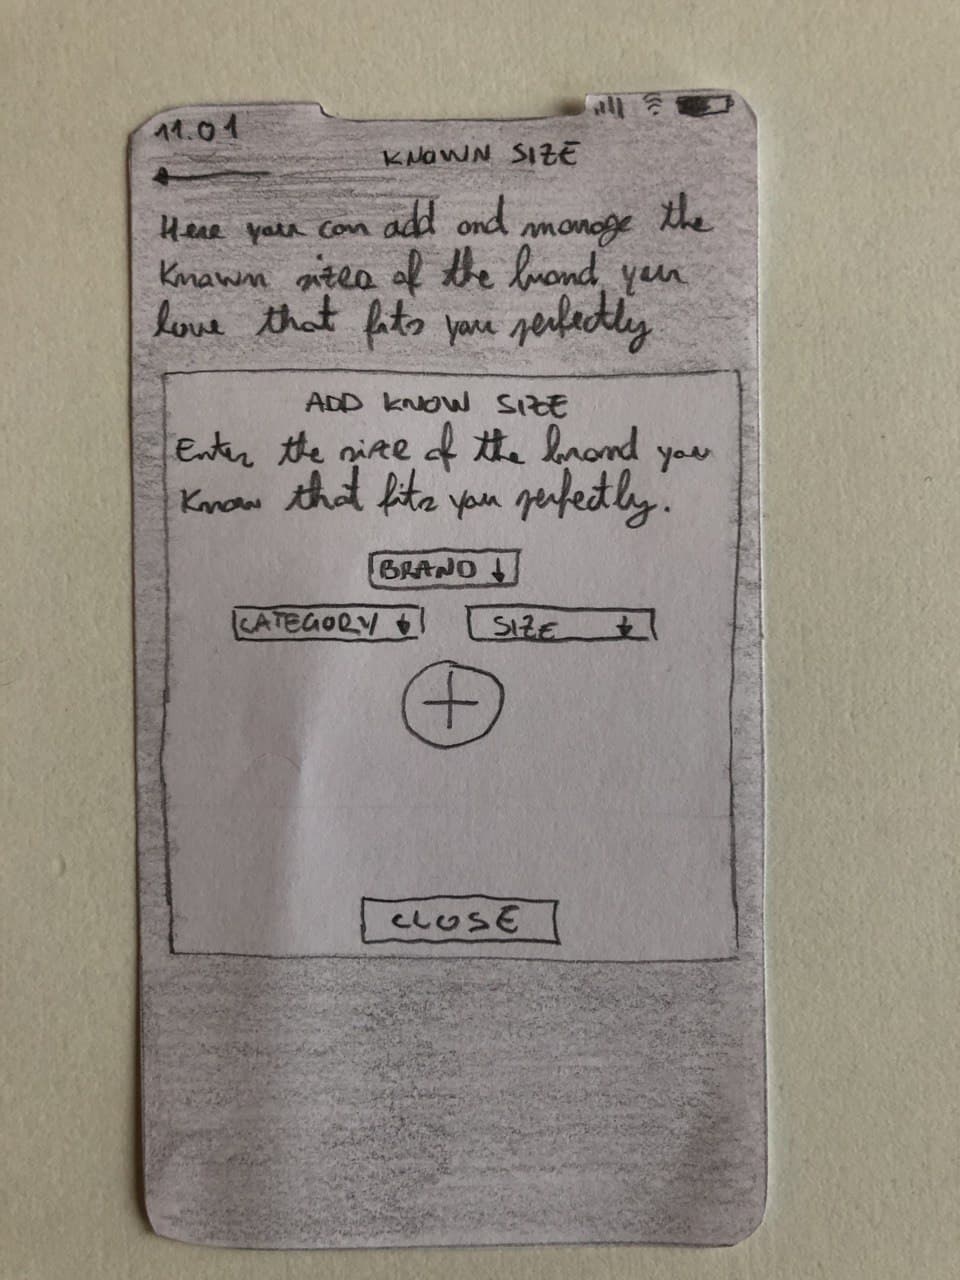 11.01
KNOWN SIZE
Here you can add and manage the
Known sizes of the brand you
love that fits you perfectly
ADD KNOW SIZE
Enter the size of the brand you
Know that fits you perfectly.
BRAND ↓
CATEGORY ↓ SIZE ↓
+
CLOSE